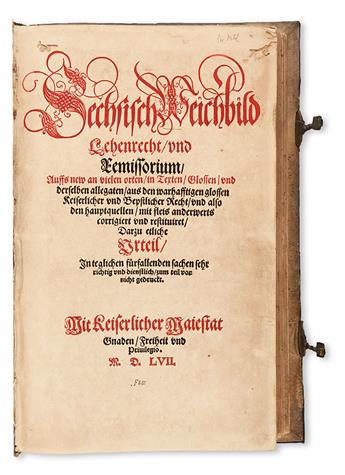 Sechsisch Weichbild
Lehenrecht/ vnd
Remissorium/
Auffs new an vielen orten/ in Texten/ Glossen/ vnd
derselben allegaten/ aus den warhafftigen glossen
Keiserlicher vnd Bepstlicher Recht/ vnd also
den hauptquellen/ mit fleis anderwerts
corrigiert vnd restituiret/
Darzu etliche
Vrteil/
In teglichen fürfallenden sachen sehr
richtig vnd dienstlich/ zum teil vor
nicht gedruckt.
Mit Keiserlicher Maiestat
Gnaden/ Freiheit vnd
Priuilegio.
M. D. LVII.